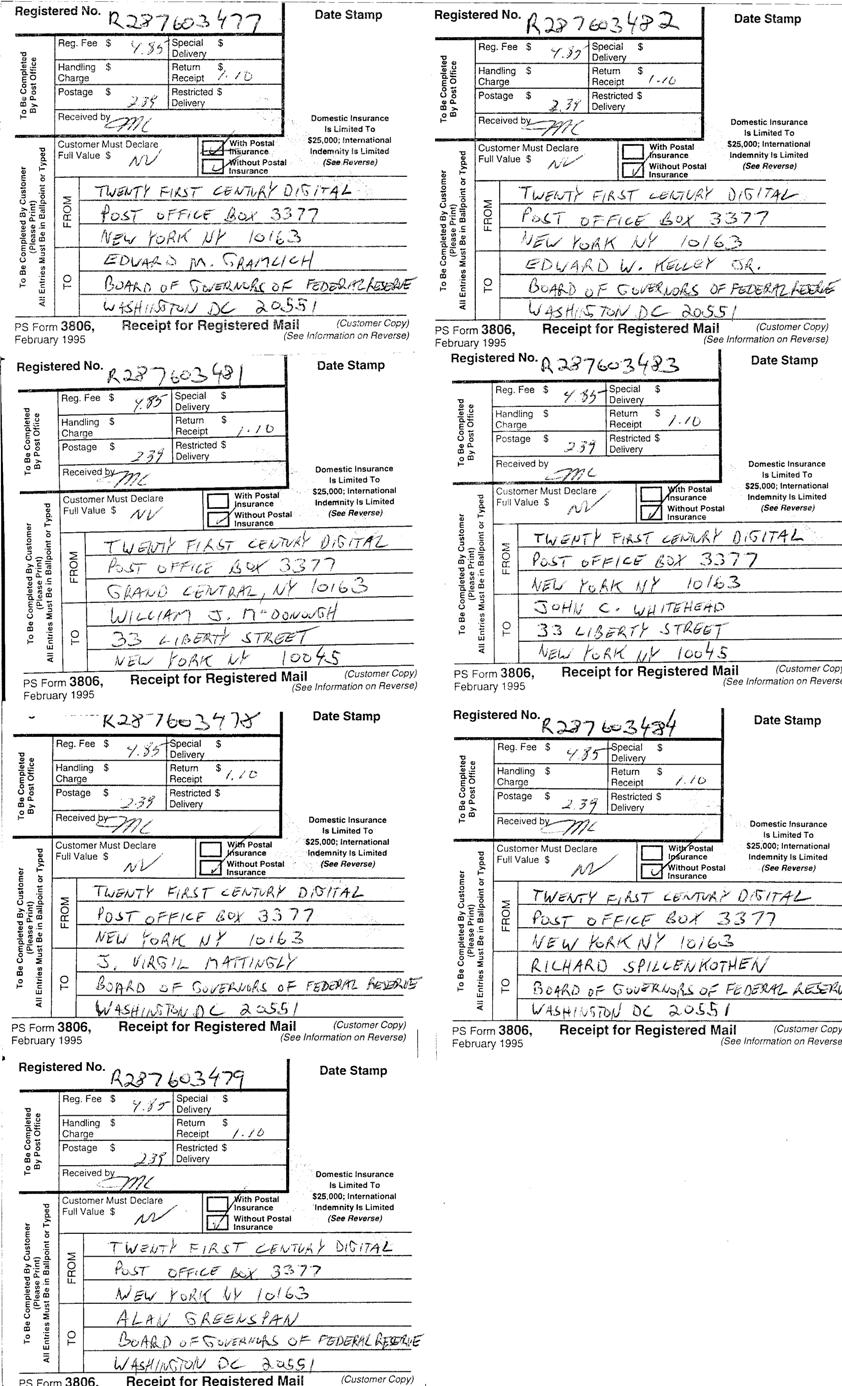 Registered No. R287603477
Date Stamp
To Be Completed By Post Office
Reg. Fee $ 4.85 Special Delivery $
Handling Charge $ Return Receipt $ 1.10
Postage $ 2.39 Restricted Delivery $
Received by MC
Domestic Insurance Is Limited To $25,000; International Indemnity Is Limited (See Reverse)
Customer Must Declare Full Value $ NV
With Postal Insurance
Without Postal Insurance
To Be Completed By Customer (Please Print) All Entries Must Be in Ballpoint or Typed
FROM
TWENTY FIRST CENTURY DIGITAL
POST OFFICE BOX 3377
NEW YORK NY 10163
TO
EDWARD M. GRAMLICH
BOARD OF GOVERNORS OF FEDERAL RESERVE
WASHINGTON DC 20551
PS Form 3806, February 1995
Receipt for Registered Mail
(Customer Copy)
(See Information on Reverse)
Registered No. R287603482
Date Stamp
To Be Completed By Post Office
Reg. Fee $ 4.85 Special Delivery $
Handling Charge $ Return Receipt $ 1.10
Postage $ 2.39 Restricted Delivery $
Received by MC
Domestic Insurance Is Limited To $25,000; International Indemnity Is Limited (See Reverse)
Customer Must Declare Full Value $ NV
With Postal Insurance
Without Postal Insurance
To Be Completed By Customer (Please Print) All Entries Must Be in Ballpoint or Typed
FROM
TWENTY FIRST CENTURY DIGITAL
POST OFFICE BOX 3377
NEW YORK NY 10163
TO
EDWARD W. KELLEY JR.
BOARD OF GOVERNORS OF FEDERAL RESERVE
WASHINGTON DC 20551
PS Form 3806, February 1995
Receipt for Registered Mail
(Customer Copy)
(See Information on Reverse)
Registered No. R287603481
Date Stamp
To Be Completed By Post Office
Reg. Fee $ 4.85 Special Delivery $
Handling Charge $ Return Receipt $ 1.10
Postage $ 2.39 Restricted Delivery $
Received by MC
Domestic Insurance Is Limited To $25,000; International Indemnity Is Limited (See Reverse)
Customer Must Declare Full Value $ NV
With Postal Insurance
Without Postal Insurance
To Be Completed By Customer (Please Print) All Entries Must Be in Ballpoint or Typed
FROM
TWENTY FIRST CENTURY DIGITAL
POST OFFICE BOX 3377
GRAND CENTRAL, NY 10163
TO
WILLIAM J. McDONOUGH
33 LIBERTY STREET
NEW YORK NY 10045
PS Form 3806, February 1995
Receipt for Registered Mail
(Customer Copy)
(See Information on Reverse)
Registered No. R287603483
Date Stamp
To Be Completed By Post Office
Reg. Fee $ 4.85 Special Delivery $
Handling Charge $ Return Receipt $ 1.10
Postage $ 2.39 Restricted Delivery $
Received by MC
Domestic Insurance Is Limited To $25,000; International Indemnity Is Limited (See Reverse)
Customer Must Declare Full Value $ NV
With Postal Insurance
Without Postal Insurance
To Be Completed By Customer (Please Print) All Entries Must Be in Ballpoint or Typed
FROM
TWENTY FIRST CENTURY DIGITAL
POST OFFICE BOX 3377
NEW YORK NY 10163
TO
JOHN C. WHITEHEAD
33 LIBERTY STREET
NEW YORK NY 10045
PS Form 3806, February 1995
Receipt for Registered Mail
(Customer Copy)
(See Information on Reverse)
R287603478
Date Stamp
To Be Completed By Post Office
Reg. Fee $ 4.85 Special Delivery $
Handling Charge $ Return Receipt $ 1.10
Postage $ 2.39 Restricted Delivery $
Received by MC
Domestic Insurance Is Limited To $25,000; International Indemnity Is Limited (See Reverse)
Customer Must Declare Full Value $ NV
With Postal Insurance
Without Postal Insurance
To Be Completed By Customer (Please Print) All Entries Must Be in Ballpoint or Typed
FROM
TWENTY FIRST CENTURY DIGITAL
POST OFFICE BOX 3377
NEW YORK NY 10163
TO
J. VIRGIL MATTINGLY
BOARD OF GOVERNORS OF FEDERAL RESERVE
WASHINGTON DC 20551
PS Form 3806, February 1995
Receipt for Registered Mail
(Customer Copy)
(See Information on Reverse)
Registered No. R287603484
Date Stamp
To Be Completed By Post Office
Reg. Fee $ 4.85 Special Delivery $
Handling Charge $ Return Receipt $ 1.10
Postage $ 2.39 Restricted Delivery $
Received by MC
Domestic Insurance Is Limited To $25,000; International Indemnity Is Limited (See Reverse)
Customer Must Declare Full Value $ NV
With Postal Insurance
Without Postal Insurance
To Be Completed By Customer (Please Print) All Entries Must Be in Ballpoint or Typed
FROM
TWENTY FIRST CENTURY DIGITAL
POST OFFICE BOX 3377
NEW YORK NY 10163
TO
RICHARD SPILLENKOTHEN
BOARD OF GOVERNORS OF FEDERAL RESERV
WASHINGTON DC 20551
PS Form 3806, February 1995
Receipt for Registered Mail
(Customer Copy)
(See Information on Reverse)
Registered No. R287603479
Date Stamp
To Be Completed By Post Office
Reg. Fee $ 4.85 Special Delivery $
Handling Charge $ Return Receipt $ 1.10
Postage $ 2.39 Restricted Delivery $
Received by MC
Domestic Insurance Is Limited To $25,000; International Indemnity Is Limited (See Reverse)
Customer Must Declare Full Value $ NV
With Postal Insurance
Without Postal Insurance
To Be Completed By Customer (Please Print) All Entries Must Be in Ballpoint or Typed
FROM
TWENTY FIRST CENTURY DIGITAL
POST OFFICE BOX 3377
NEW YORK NY 10163
TO
ALAN GREENSPAN
BOARD OF GOVERNORS OF FEDERAL RESERVE
WASHINGTON DC 20551
PS Form 3806,
Receipt for Registered Mail
(Customer Copy)